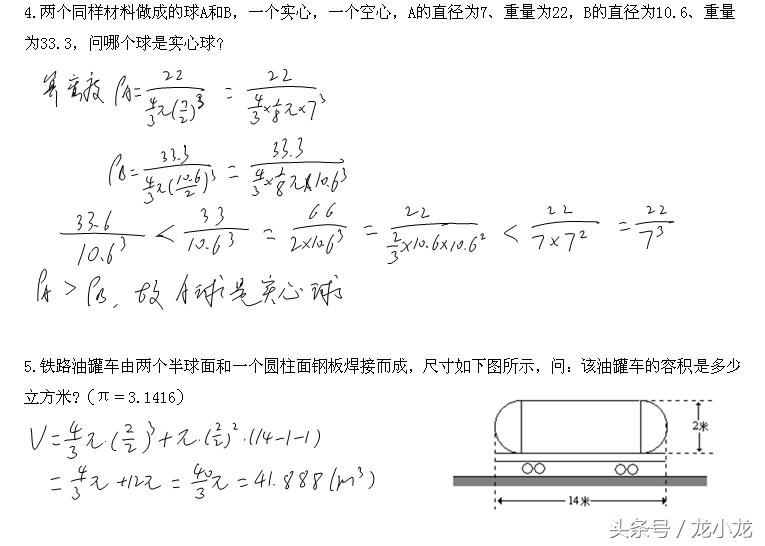 4.两个同样材料做成的球A和B，一个实心，一个空心，A的直径为7、重量为22，B的直径为10.6、重量
为33.3，问哪个球是实心球?
算密度 ρA = 22/(4/3 π(7/2)³) = 22/(4/3×1/8π×7³)
ρB = 33.3/(4/3 π(10.6/2)³) = 33.3/(4/3×1/8π×10.6³)
33.6/10.6³ < 33/10.6³ = 66/(2×10.6³) = 22/(2/3×10.6×10.6²) < 22/(7×7²) = 22/7³
ρA > ρB, 故A球是实心球
5.铁路油罐车由两个半球面和一个圆柱面钢板焊接而成，尺寸如下图所示，问：该油罐车的容积是多少
立方米?（π＝3.1416）
V = 4/3 π·(2/2)³ + π·(2/2)²·(14-1-1)
= 4/3 π + 12π = 40/3 π = 41.888 (m³)
2米
14米
头条号 / 龙小龙